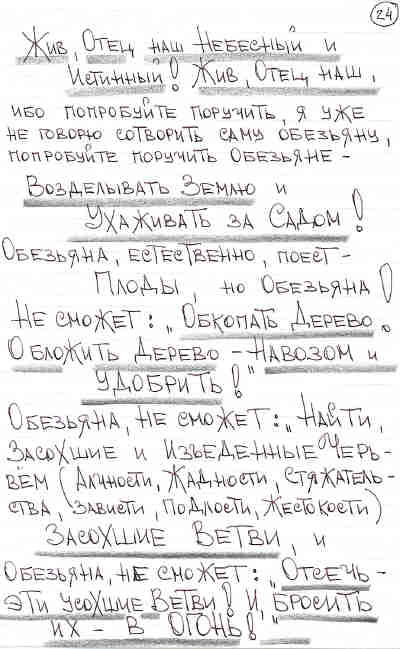 24
Жив, Отец наш Небесный и
Истинный! Жив, Отец, наш,
ибо попробуйте поручить, я уже
не говорю сотворить саму обезьяну,
попробуйте поручить обезьяне -
Возделывать Землю и
Ухаживать за Садом!
Обезьяна, естественно, поест -
Плоды, но Обезьяна!
Не сможет: „Обкопать Дерево,
Обложить Дерево - Навозом и
Удобрить!"
Обезьяна, не сможет: „Найти,
Засохшие и Изъеденные Черь-
вём (Алчности, Жадности, Стяжатель-
ства, Зависти, Подлости, Жестокости)
Засохшие Ветви, и
Обезьяна, не сможет: „Отсечь -
эти усохшие Ветви! И, Бросить
их - в Огонь!"